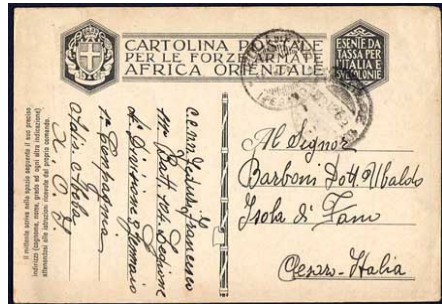 CARTOLINA POSTALE
PER LE FORZE ARMATE
AFRICA ORIENTALE
ESENTE DA
TASSA PER
L'ITALIA E
SUE COLONIE
Il mittente scriva nello spazio seguente il suo preciso
indirizzo (cognome, nome, grado ed ogni altra indicazione)
attenendosi alle istruzioni ricevute dal proprio comando.
Francesco
Batt. Legione
Divisione 3 Gennaio
1ª Compagnia
A. O.
Al Signor
Barboni Dott. Ubaldo
Isola di Fano
Pesaro-Italia